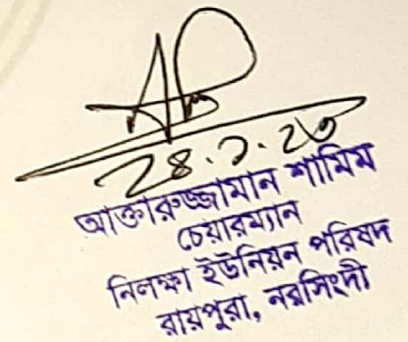 ২৪.১.২৩
আক্তারুজ্জামান শামিম
চেয়ারম্যান
নিলক্ষা ইউনিয়ন পরিষদ
রায়পুরা, নরসিংদী